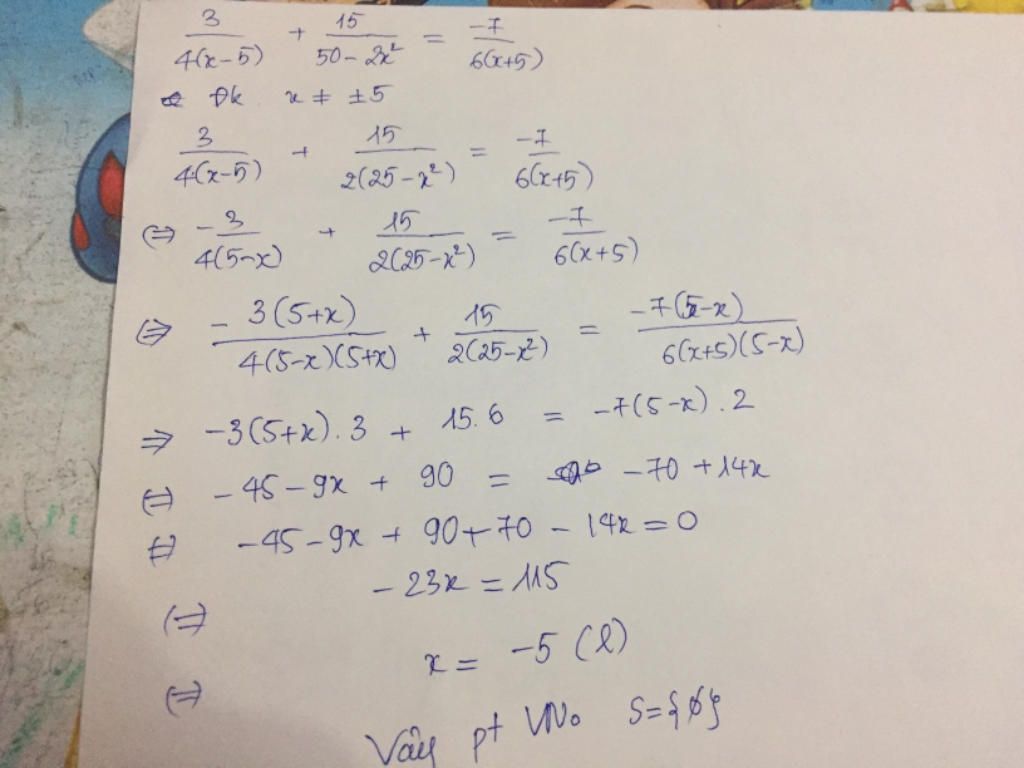 3/(4(x-5)) + 15/(50-2x²) = -7/(6(x+5))
Đk x ≠ ±5
3/(4(x-5)) + 15/(2(25-x²)) = -7/(6(x+5))
(=) -3/(4(5-x)) + 15/(2(25-x²)) = -7/(6(x+5))
(=) -3(5+x)/(4(5-x)(5+x)) + 15/(2(25-x²)) = -7(5-x)/(6(x+5)(5-x))
=> -3(5+x).3 + 15.6 = -7(5-x).2
(=) -45-9x + 90 = -70+14x
(=) -45-9x + 90+70 - 14x = 0
(=) -23x = 115
(=) x = -5 (l)
Vậy pt VNo S={∅}